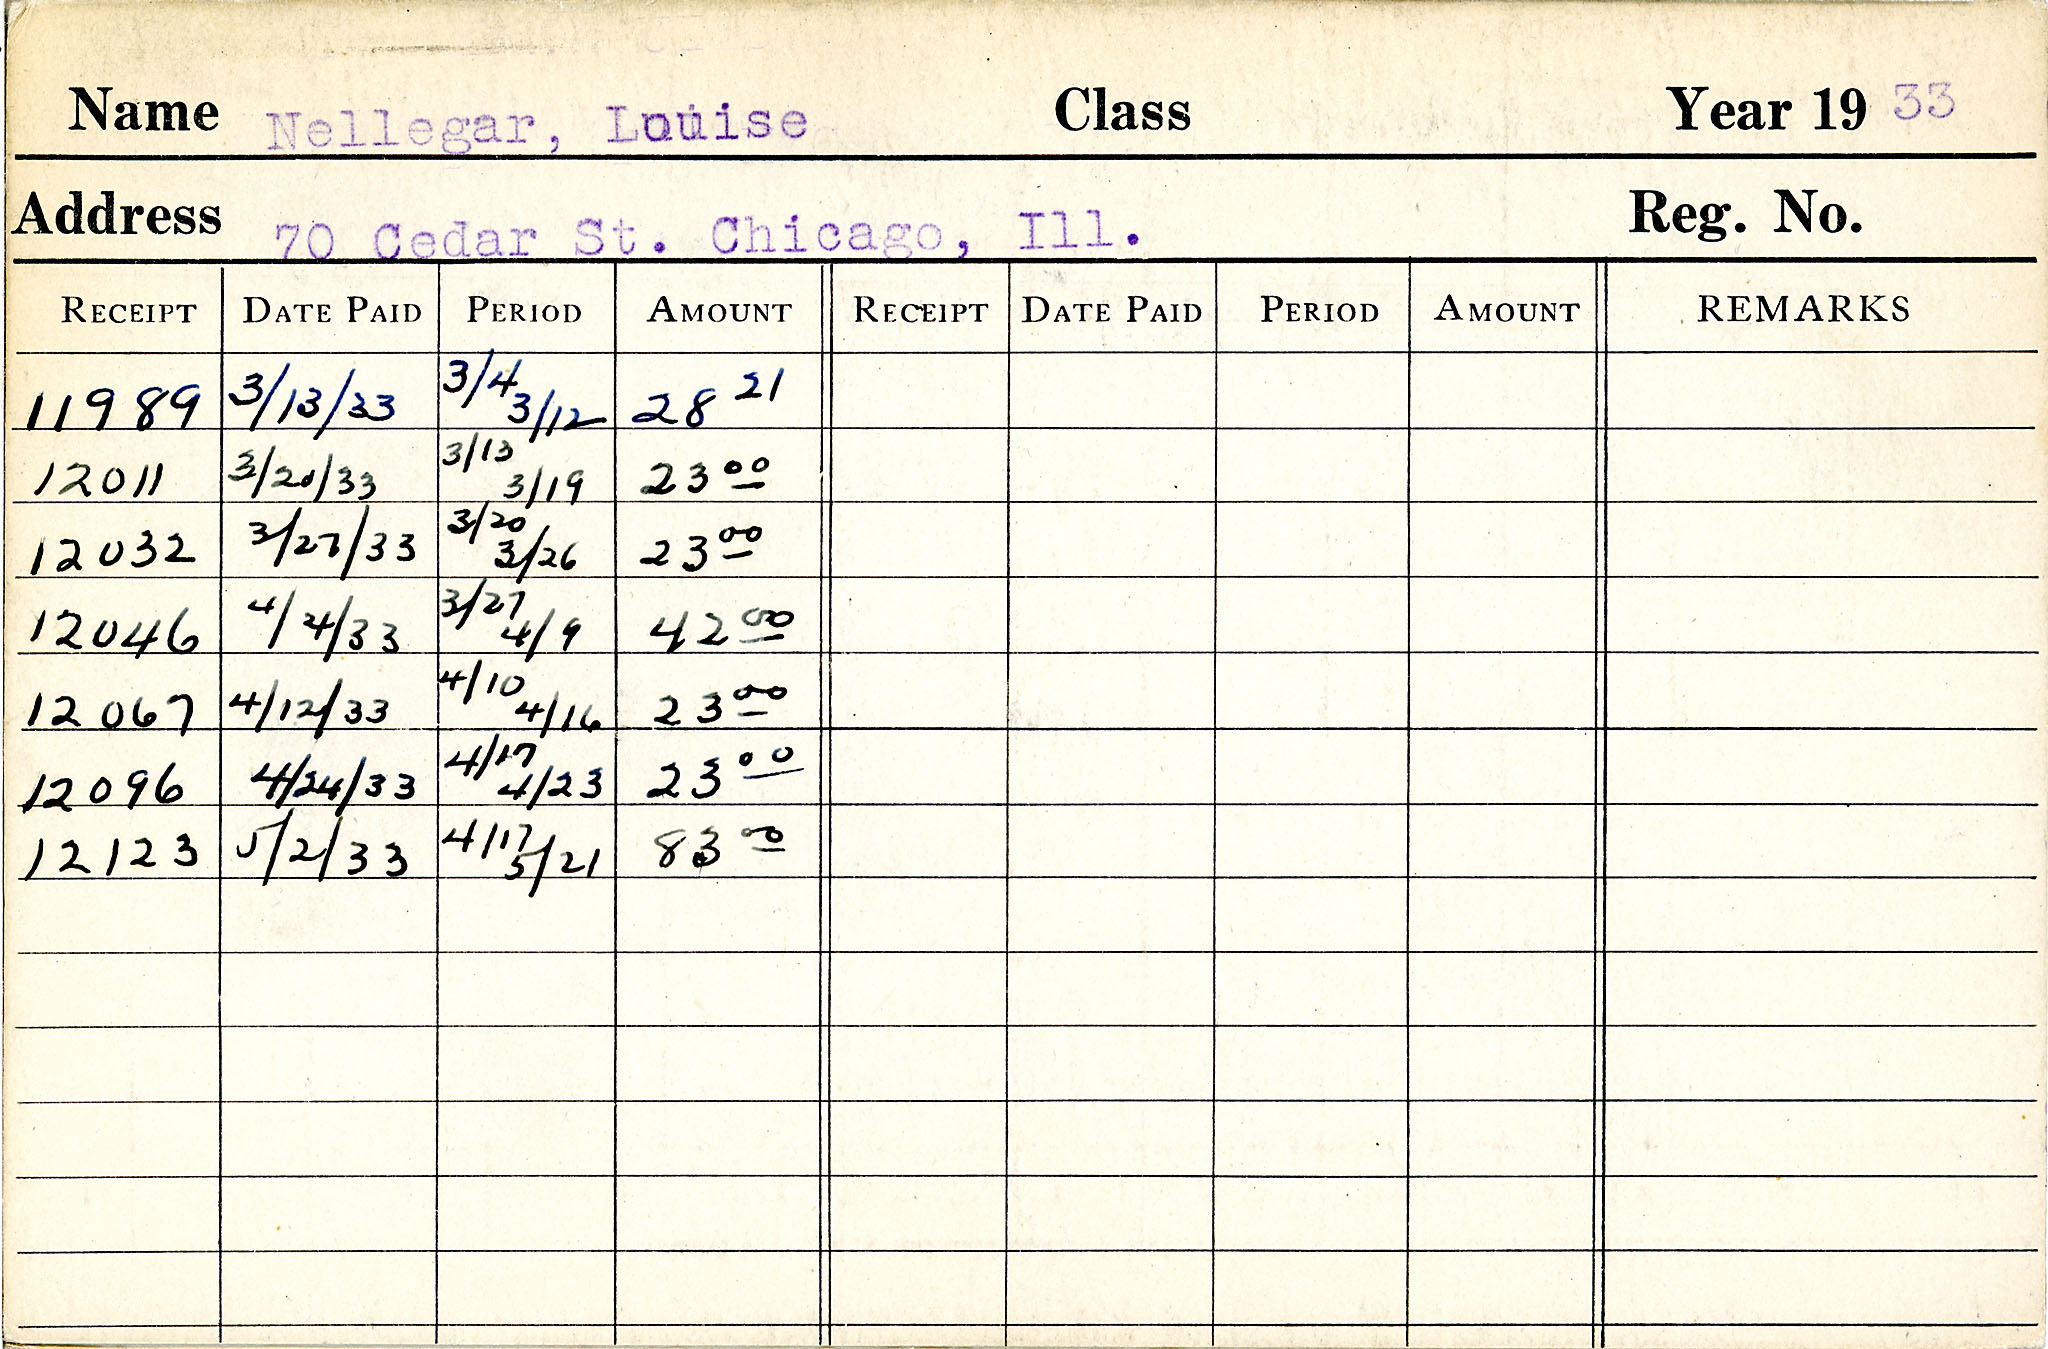 Name Nellegar, Louise Class Year 19 33
Address 70 Cedar St. Chicago, Ill. Reg. No.
RECEIPT DATE PAID PERIOD AMOUNT RECEIPT DATE PAID PERIOD AMOUNT REMARKS
11989 3/13/33 3/4 3/12 28 21
12011 3/20/33 3/13 3/19 23 00
12032 3/27/33 3/20 3/26 23 00
12046 4/4/33 3/27 4/9 42 00
12067 4/12/33 4/10 4/16 23 00
12096 4/24/33 4/17 4/23 23 00
12123 5/2/33 4/17 5/21 83 00